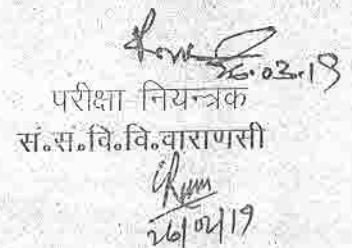 26.03.19
परीक्षा नियन्त्रक
सं.स.वि.वि.वाराणसी
26/02/19